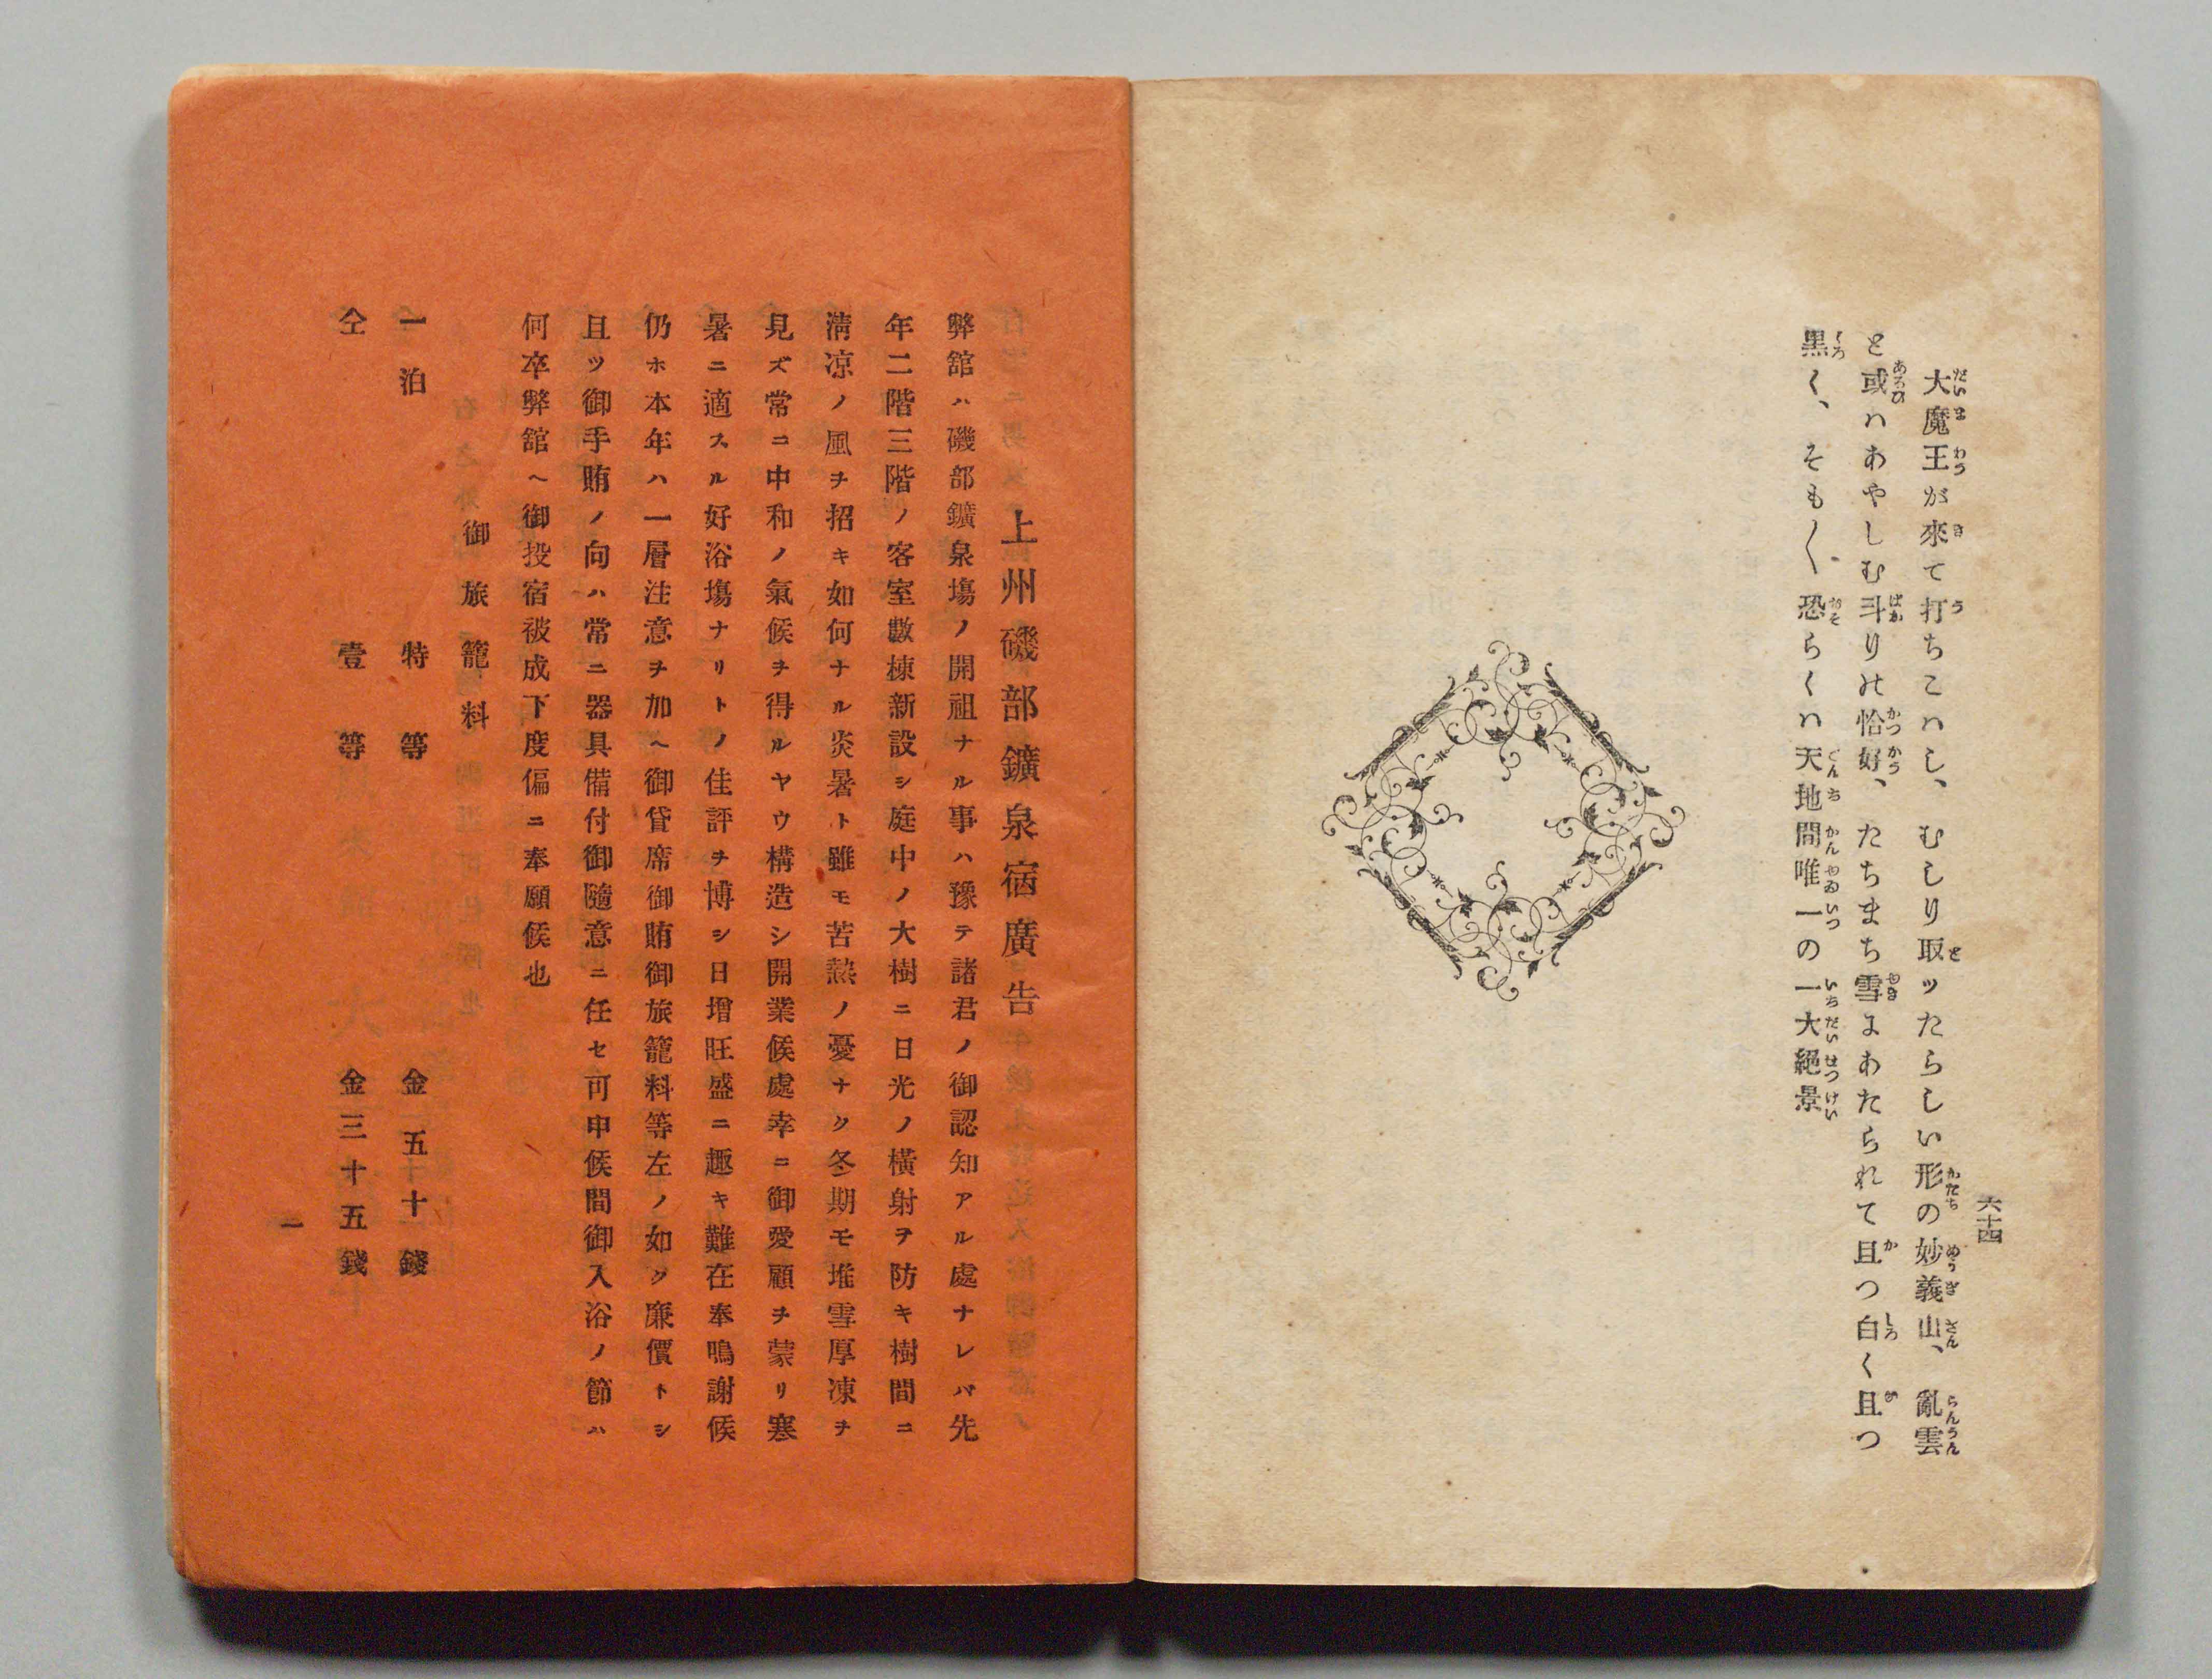 六十四
大魔王が來て打ちこハし、むしり取ッたらしい形の妙義山、亂雲
と或ハあやしむ斗りの恰好、たちまち雪にあたられて且つ白く且つ
黒く、そも〳〵恐らくハ天地間唯一の一大絕景
上州磯部鑛泉宿廣告
弊舘ハ磯部鑛泉塲ノ開祖ナル事ハ豫テ諸君ノ御認知アル處ナレバ先
年二階三階ノ客室數棟新設シ庭中ノ大樹ニ日光ノ橫射ヲ防キ樹間ニ
淸凉ノ風ヲ招キ如何ナル炎暑ト雖モ苦熱ノ憂ナク冬期モ堆雪厚凍ヲ
見ズ常ニ中和ノ氣候ヲ得ルヤウ構造シ開業候處幸ニ御愛顧ヲ蒙リ寒
暑ニ適スル好浴塲ナリトノ佳評ヲ博シ日增旺盛ニ趣キ難在奉鳴謝候
仍ホ本年ハ一層注意ヲ加ヘ御貸席御賄御旅籠料等左ノ如ク廉價トシ
且ツ御手賄ノ向ハ常ニ器具備付御隨意ニ任セ可申候間御入浴ノ節ハ
何卒弊舘ヘ御投宿被成下度偏ニ奉願候也
御旅籠料
一泊　特等　金五十錢
仝　壹等　金三十五錢
一